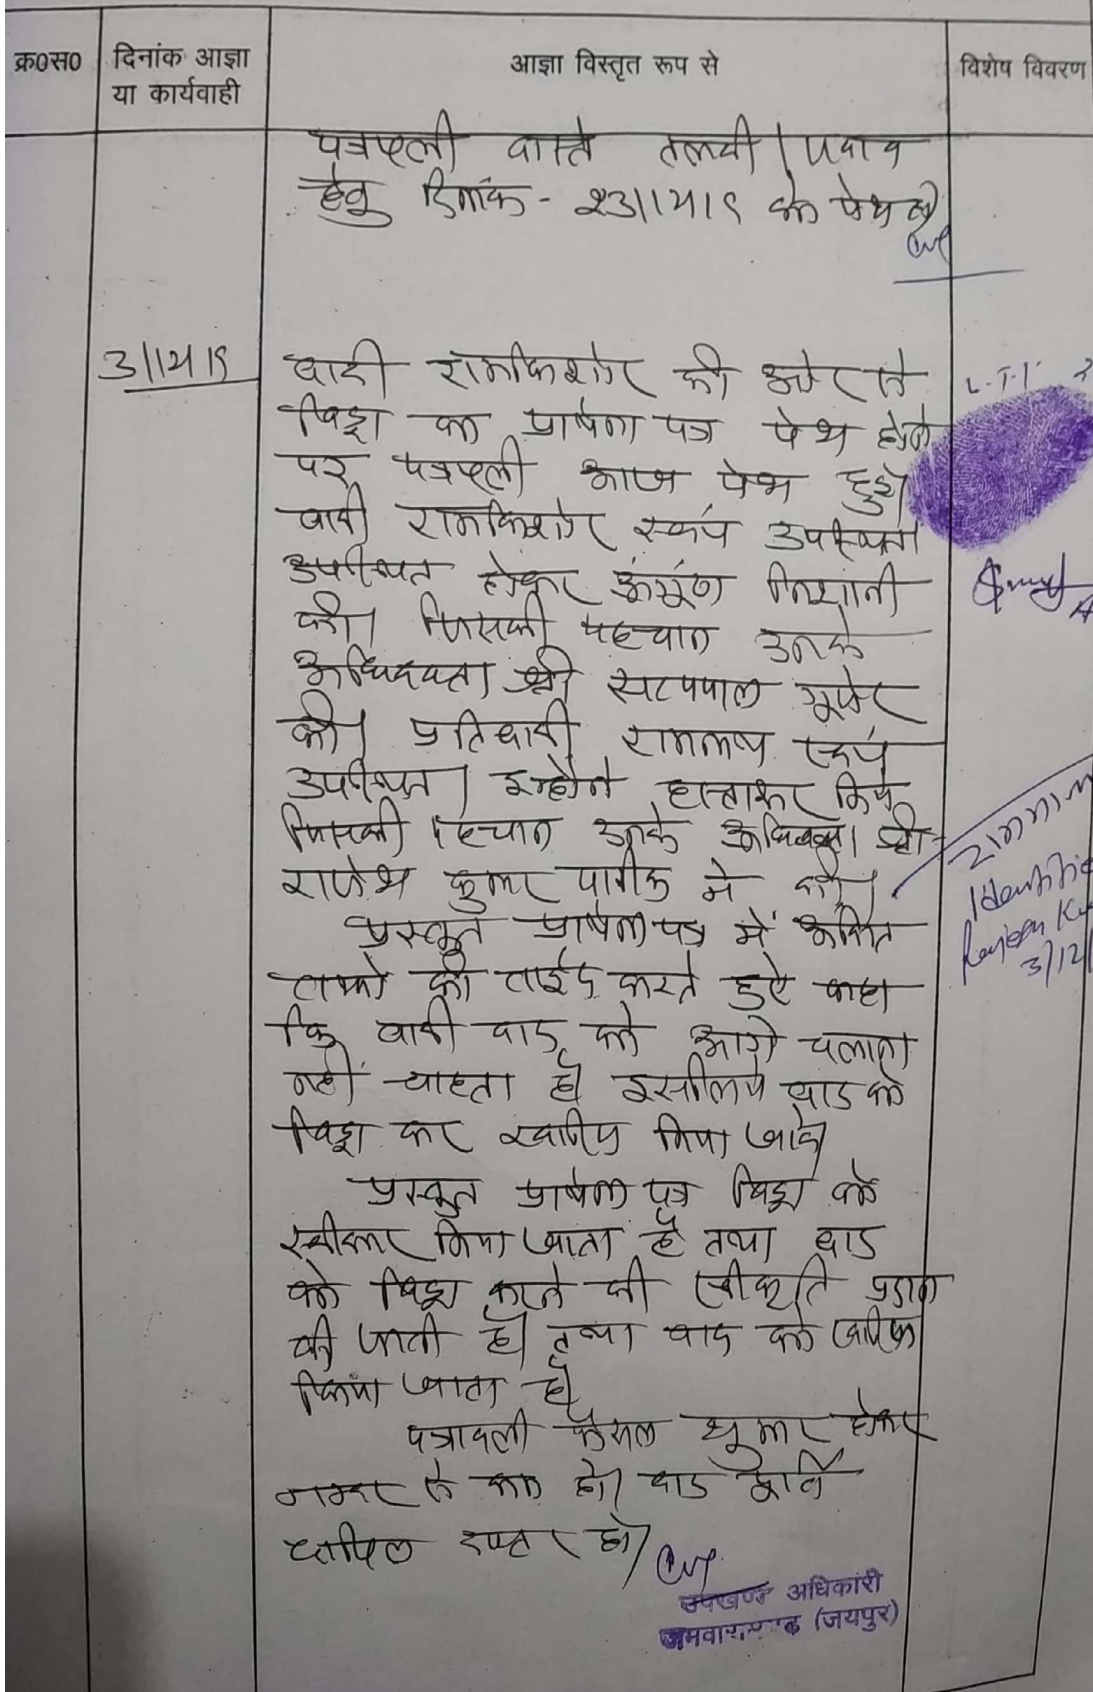 क्र0स0
दिनांक आज्ञा
या कार्यवाही
आज्ञा विस्तृत रूप से
विशेष विवरण
पत्रावली वास्ते तलवी / जवाब
हेतु दिनांक - 23/12/19 को पेश हो
3/12/19
वादी रामकिशोर की ओर से
विड्रा का प्रार्थना पत्र पेश होने
पर पत्रावली आज पेश हुई।
वादी रामकिशोर स्वयं उपस्थित
उपस्थित होकर अंगूठा निशानी
की। जिसकी पहचान उनके
अधिवक्ता श्री सत्यपाल गुर्जर
की। प्रतिवादी रामलाल स्वयं
उपस्थित। इन्होंने हस्ताक्षर किये
जिसकी पहचान उनके अधिवक्ता श्री
राजेश कुमार पारीक ने की।
प्रस्तुत प्रार्थना पत्र में अंकित
तथ्यो की ताईद करते हुऐ कहा
कि वादी वाद को आगे चलाना
नहीं चाहता है। इसलिये वाद को
विड्रा कर खारिज किया जावे।
प्रस्तुत प्रार्थना पत्र विड्रा को
स्वीकार किया जाता है तथा वाद
को विड्रा करने की स्वीकृति प्रदान
की जाती है। तथा वाद को खारिज
किया जाता है।
पत्रावली फैसल शुमार होकर
नम्बर से कम हो। वाद पूर्ति
दाखिल दफ्तर हो।
L.T.I.
3/12/
उपखण्ड अधिकारी
(जयपुर)